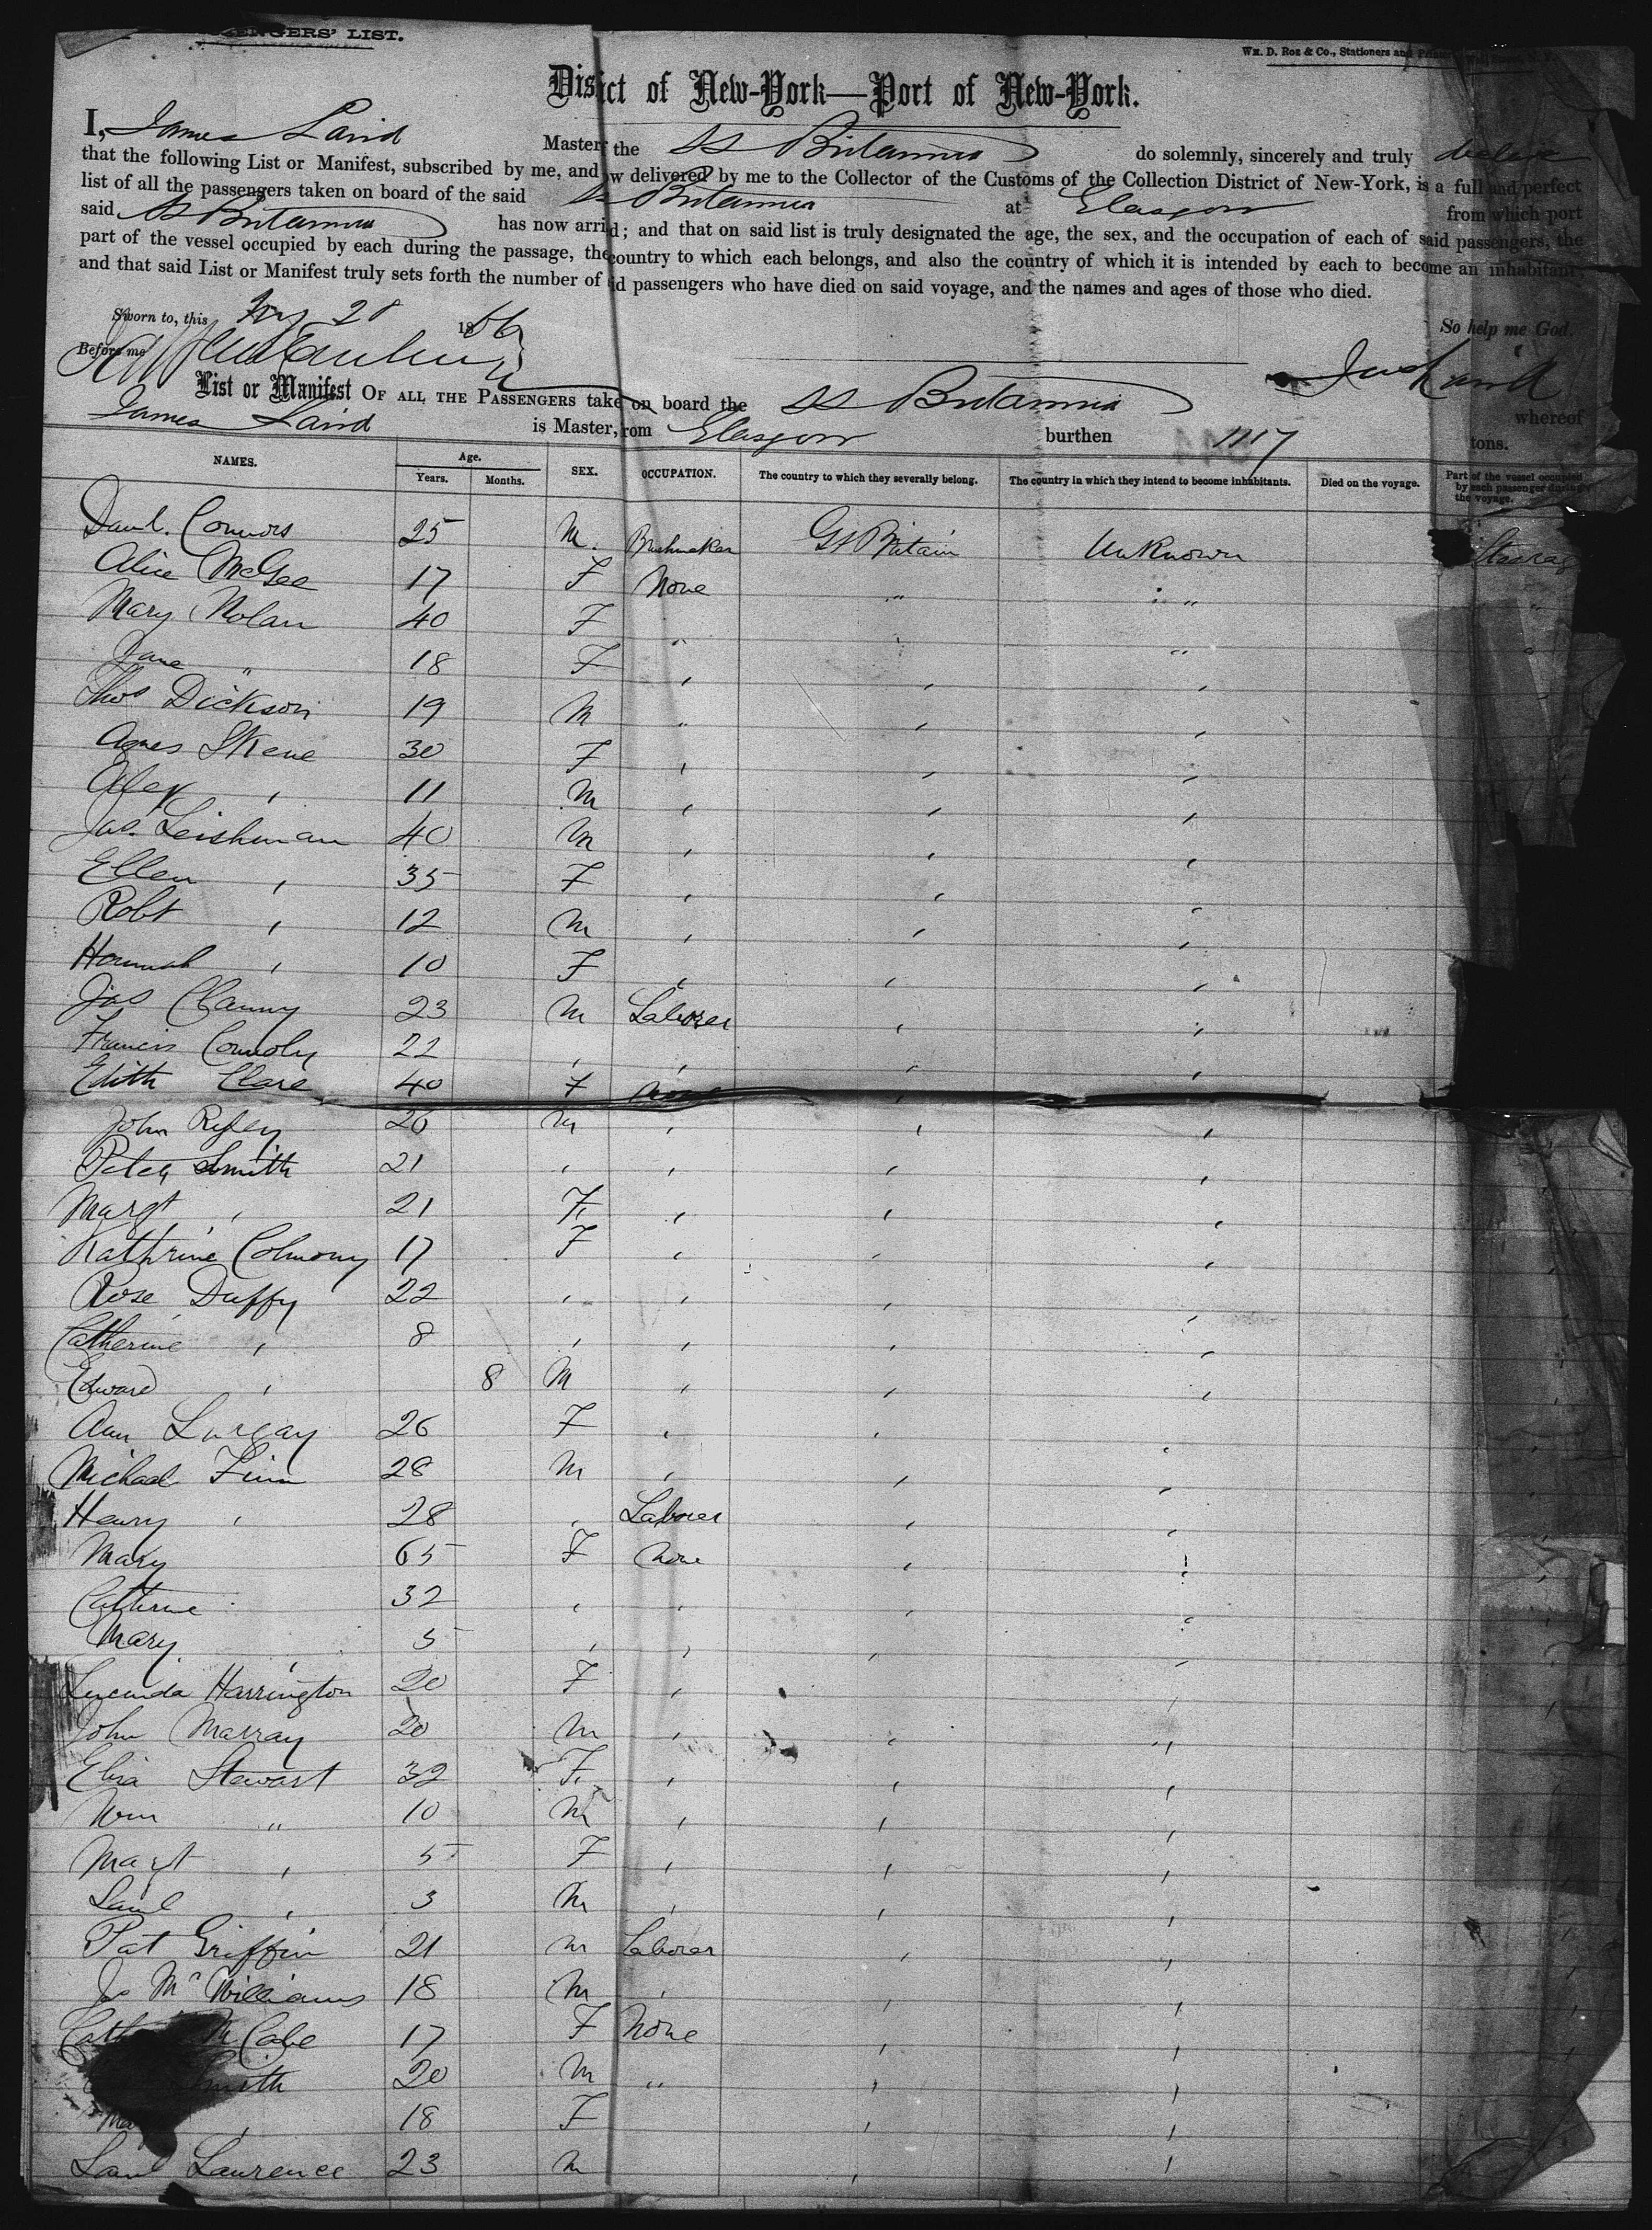 ENGERS' LIST.
Wm. D. Roe & Co., Stationers and
Disict of New-York—Port of New-York.
I, James Laird Master the SS Britannia do solemnly, sincerely and truly declare
that the following List or Manifest, subscribed by me, and ow delivered by me to the Collector of the Customs of the Collection District of New-York, is a full and perfect
list of all the passengers taken on board of the said SS Britannia at Glasgow from which port
said SS Britannia has now arrid; and that on said list is truly designated the age, the sex, and the occupation of each of said passengers, the
part of the vessel occupied by each during the passage, the country to which each belongs, and also the country of which it is intended by each to become an inhabitant;
and that said List or Manifest truly sets forth the number of id passengers who have died on said voyage, and the names and ages of those who died.
Sworn to, this 28 1866
So help me God.
Before me
Jas Laird
List or Manifest OF ALL THE PASSENGERS take on board the SS Britannia whereof
James Laird is Master, rom Glasgow burthen 1117 tons.
NAMES. Age. Years. Months. SEX. OCCUPATION. The country to which they severally belong. The country in which they intend to become inhabitants. Died on the voyage. Part of the vessel occupied by each passenger during the voyage.
Danl. Connors 25 M. Brushmaker Gt Britain Unknown Steerag
Alice McGee 17 F None " "
Mary Nolan 40 F " " "
Jane " 18 F " " "
Thos Dickson 19 M " " "
Agnes Skene 30 F " " "
Alex " 11 M " " "
Jas. Leishman 40 M " " "
Ellen " 35 F " " "
Robt " 12 M " " "
Hannah " 10 F " " "
Jas Clanny 23 M Laborer " "
Francis Connoly 22 " " " "
Edith Clare 40 F None " "
John Rigley 26 M " " "
Peter Smith 21 " " " "
Margt " 21 F " " "
Kathrine Colmony 17 F " " "
Rose Duffy 22 " " " "
Catherine " 8 " " " "
Edward " 8 M " " "
Ann Lurgay 26 F " " "
Michael Finn 28 M " " "
Henry " 28 " Laborer " "
Mary 65 F None " "
Cathrine 32 " " " "
Mary " 5 " " " "
Lucinda Harrington 20 F " " "
John Marray 20 M " " "
Eliza Stewart 32 F " " "
Wm " 10 M " " "
Margt " 5 F " " "
Saml " 3 M " " "
Pat Griffin 21 M Laborer " "
Js McWilliams 18 M " " "
Cath McCabe 17 F None " "
Smith 20 M " " "
Ma " 18 F " "
Saml Lawrence 23 M " "